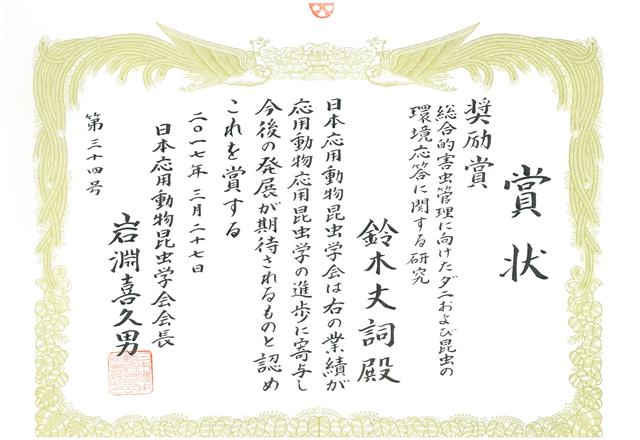 賞状
奨励賞
総合的害虫管理に向けたダニおよび昆虫の
環境応答に関する研究
鈴木丈詞殿
日本応用動物昆虫学会は右の業績が
応用動物応用昆虫学の進歩に寄与し
今後の発展が期待されるものと認め
これを賞する
二〇一七年三月二十七日
日本応用動物昆虫学会会長
岩淵喜久男
第三十四号